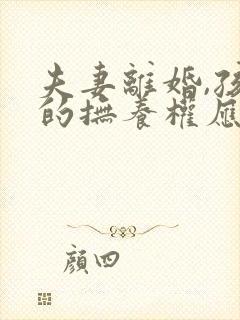 夫妻離婚,孩
的撫養權應
顔四